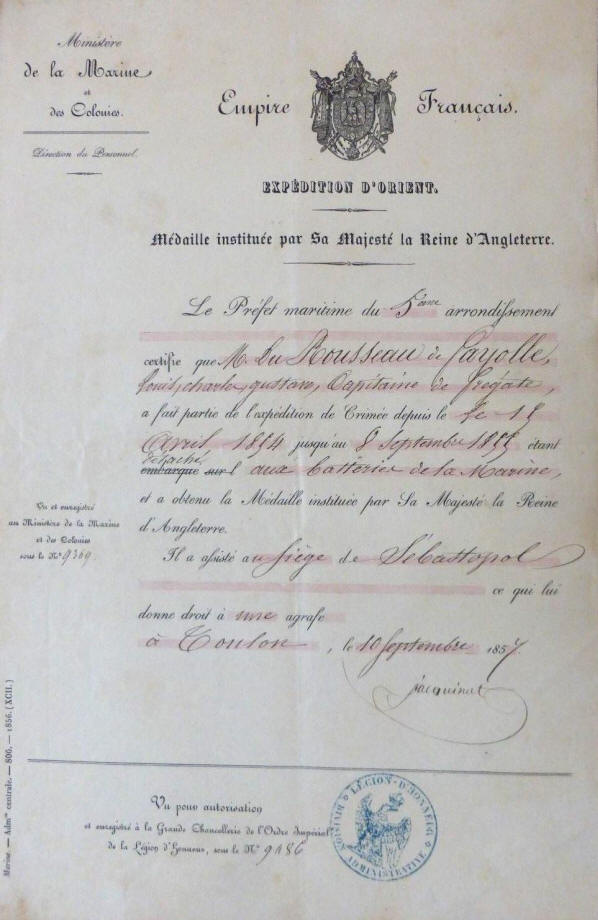 Ministère
de la Marine
et
des Colonies.
Direction du Personnel.
Empire Français.
EXPÉDITION D'ORIENT.
Médaille instituée par Sa Majesté la Reine d'Angleterre.
Le Préfet maritime du 5ème arrondissement
certifie que M. Du Rousseau de Fayolle,
Louis, Charles, gustave, Capitaine de frégate,
a fait partie de l'expédition de Crimée depuis le
avril 1854 jusqu'au 8 Septembre 1855 étant
détaché
embarqué sur l aux batteries de la Marine,
et a obtenu la Médaille instituée par Sa Majesté la Reine
d'Angleterre.
Il a assisté au siège de Sébastopol
ce qui lui
donne droit à une agrafe
à Toulon, le 10 Septembre 1857.
Jacquinot
Vu et enregistré
au Ministère de la Marine
et des Colonies
sous le N° 9369.
Marine. — Admon centrale. — 806. — 1856. (XCII.)
Vu pour autorisation
et enregistré à la Grande Chancellerie de l'Ordre Impérial
de la Légion d'Honneur, sous le N° 9186
LÉGION-D'HONNEUR
DIVISION ADMINISTRATIVE